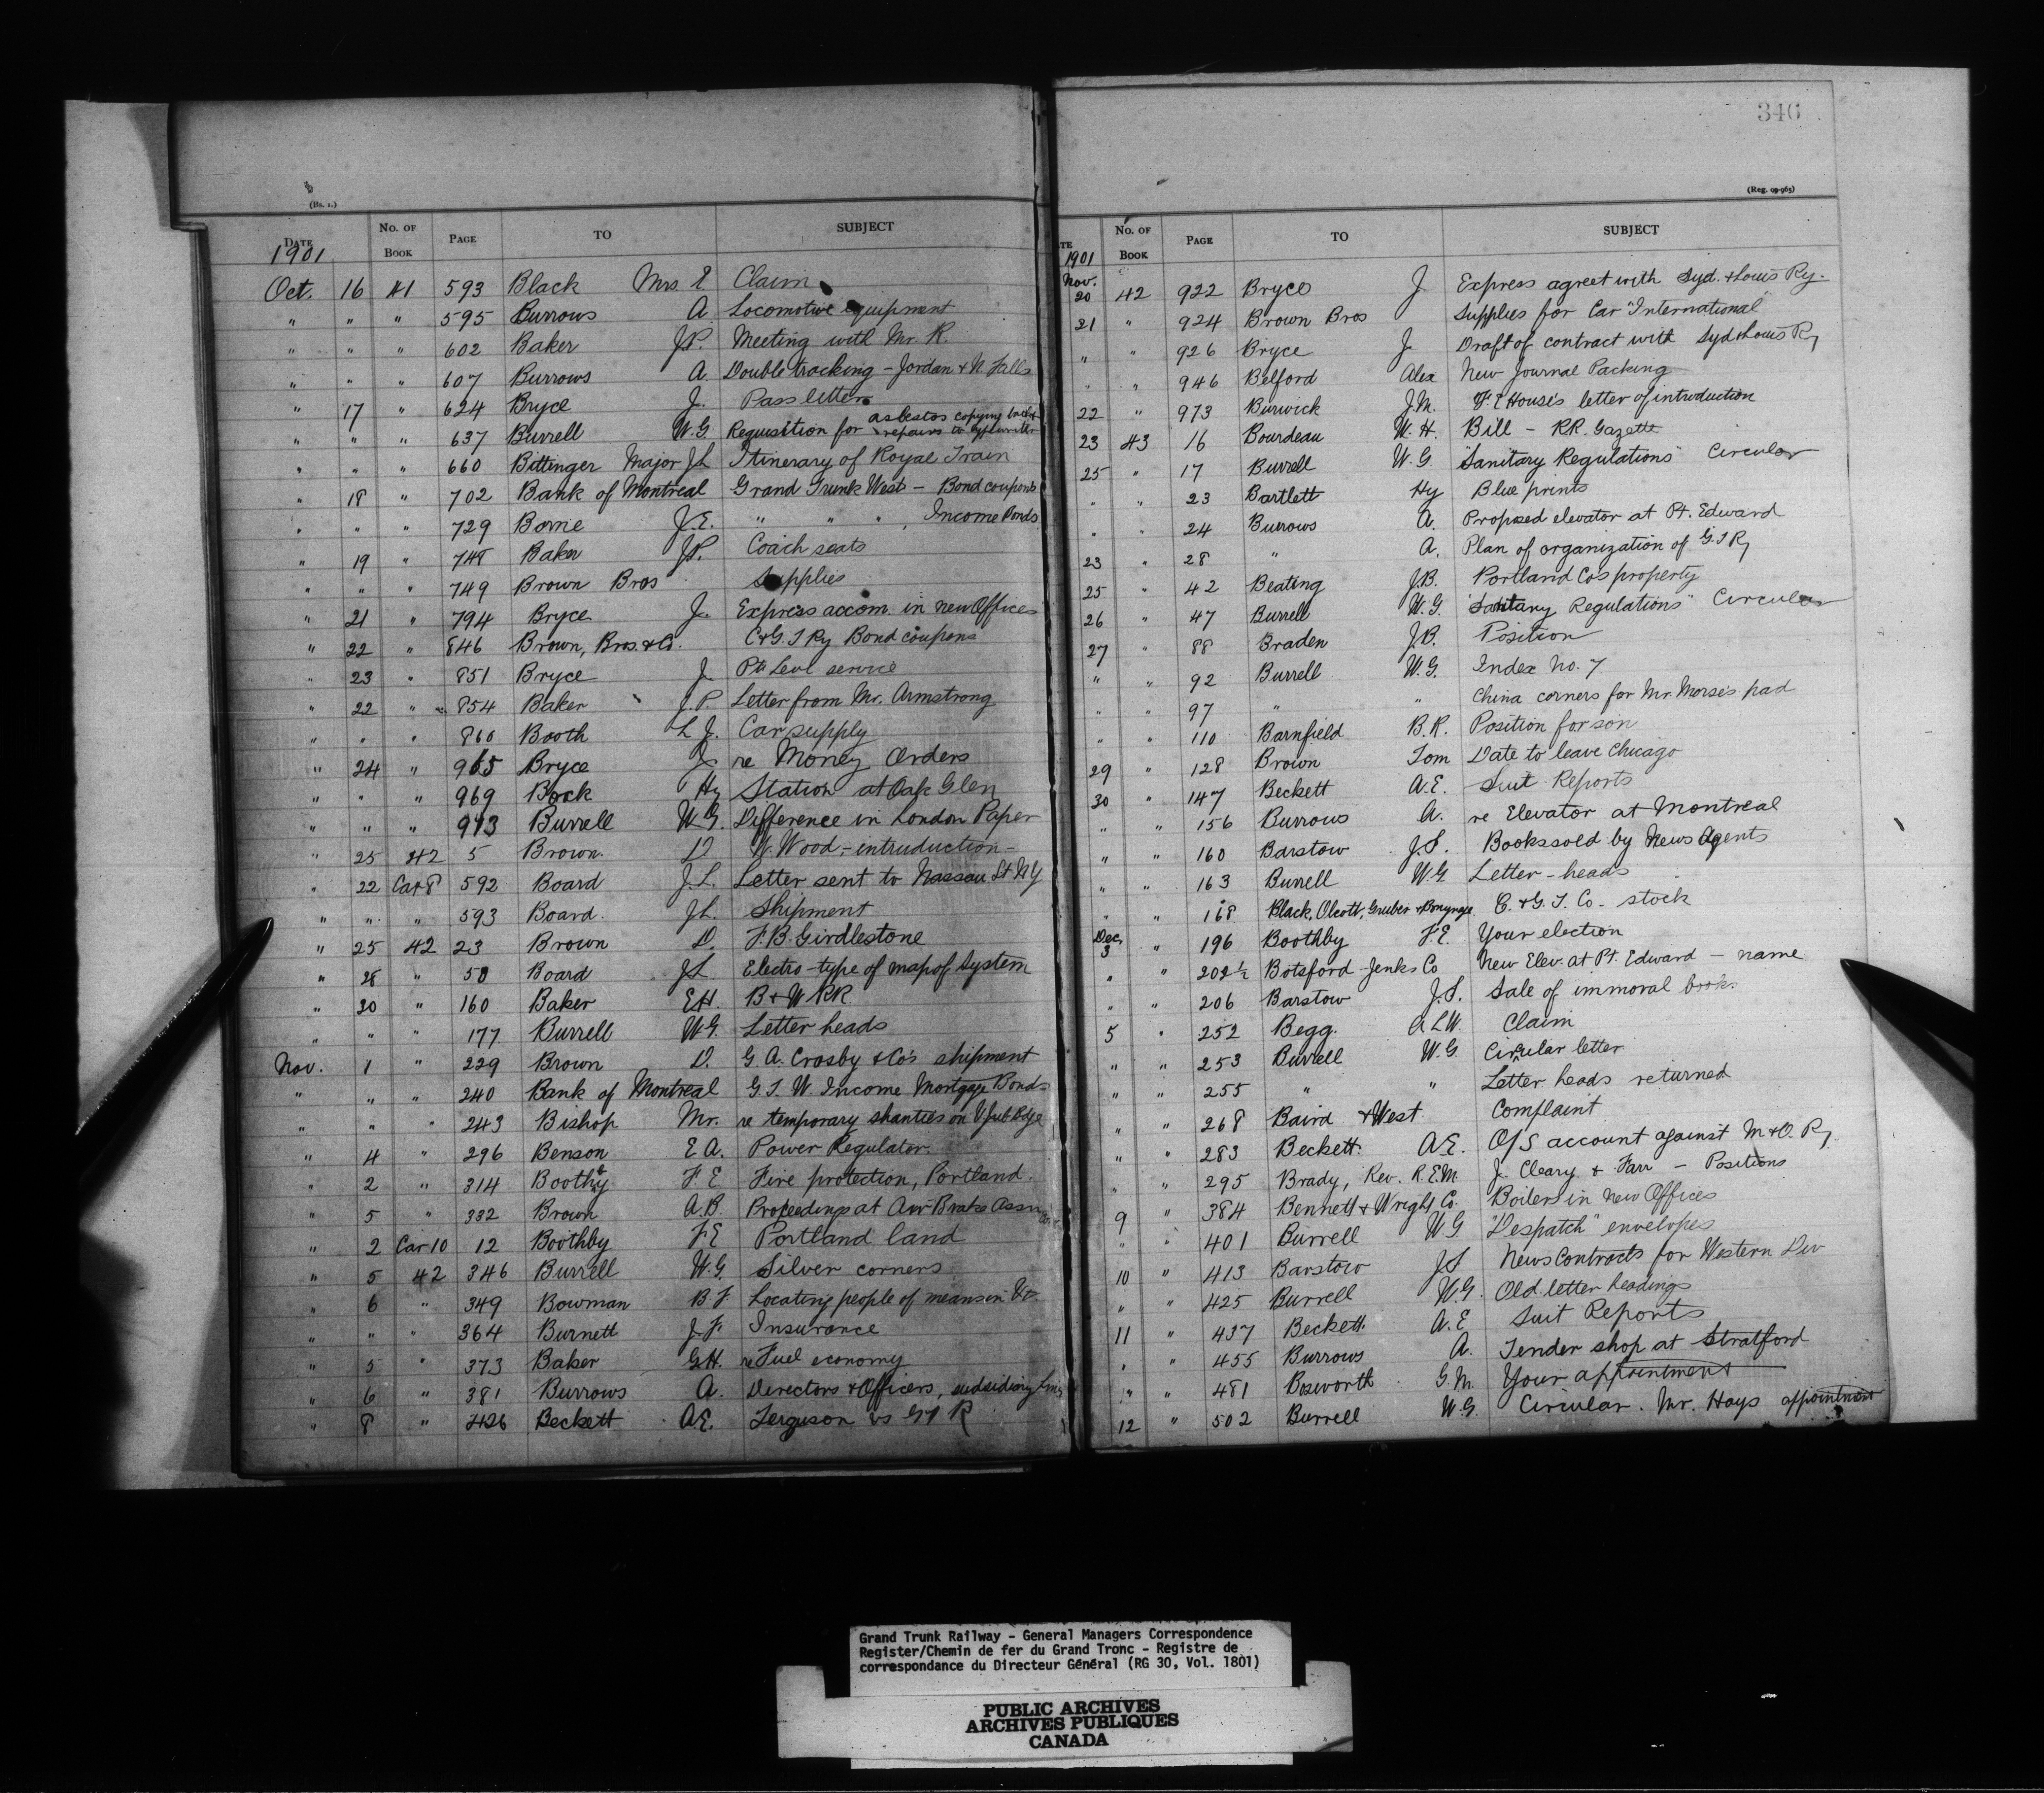 (Bs. 1.)
DATE No. OF BOOK PAGE TO SUBJECT
1901
Oct. 16 41 593 Black Mrs E. Claim
" " " 595 Burrows A Locomotive equipment
" " " 602 Baker J.P. Meeting with Mr. R.
" " " 607 Burrows A. Double tracking - Jordan & N. Falls
" 17 " 624 Bryce J. Pass letter
" " " 637 Burrell W.G. Requisition for asbestos copying & repairs to typewriter
" " " 660 Bittinger Major JL Itinerary of Royal Train
" 18 " 702 Bank of Montreal Grand Trunk West - Bond coupons
" " " 729 Borne J.E. " " " , Income Bonds
" 19 " 748 Baker J.P. Coach seats
" " " 749 Brown Bros Supplies
" 21 " 794 Bryce J. Express accom. in new Offices
" 22 " 846 Brown, Bros. & Co. C&G.T Ry Bond coupons
" 23 " 851 Bryce J. Pt Levi service
" 22 " 854 Baker J.P. Letter from Mr. Armstrong
" " " 860 Booth L J. Car supply
" 24 " 965 Bryce J. re Money Orders
" " " 969 Bock Hy Station at Oak Glen
" " " 973 Burrell W.G. Difference in London Paper
" 25 42 5 Brown. D W. Wood - intruduction -
" 22 Car 8 592 Board J.L. Letter sent to Nassau St NY
" " " 593 Board. JL. Shipment
" 25 42 23 Brown D. F.B. Girdlestone
" 28 " 58 Board JL. Electro-type of map of System
" 30 " 160 Baker E.H. B & W RR
" " " 177 Burrell W.G. Letter heads
Nov. 1 " 229 Brown D. G. A. Crosby & Co's shipment
" " " 240 Bank of Montreal G.T.W. Income Mortgage Bonds
" " " 243 Bishop Mr. re temporary shanties on V Jub Bdge
" 4 " 296 Benson E A. Power Regulator.
" 2 " 314 Boothby F E Fire protection, Portland.
" 5 " 332 Brown A.B. Proceedings at Air Brake Assn
" 2 Car 10 12 Boothby F.E Portland land
" 5 42 346 Burrell W.G. Silver corners
" 6 " 349 Bowman B F. Locating people of means in Vt.
" " " 364 Burnett J.F. Insurance
" 5 " 373 Baker G.H. re Fuel economy
" 6 " 381 Burrows A. Directors & Officers, subsidiary Lines
" 8 " 426 Beckett A.E. Ferguson vs GTR
346
(Reg. 99-965)
TE No. OF BOOK PAGE TO SUBJECT
1901
Nov. 20 42 922 Bryce J Express agreet with Syd. & Louis Ry.
21 " 924 Brown Bros Supplies for Car "International"
" " 926 Bryce J. Draft of contract with Syd & Louis Ry
" " 946 Belford Alex New Journal Packing
22 " 973 Burwick J.M. F.E House's letter of introduction
23 43 16 Bourdeau W.H. Bill - RR. Gazette
25 " 17 Burrell W.G. "Sanitary Regulations" Circular
" " 23 Bartlett Hy Blue prints
" " 24 Burrows A. Proposed elevator at Pt. Edward
23 " 28 " A. Plan of organization of G.T Ry
25 " 42 Beating J.B. Portland Co's property
26 " 47 Burrell W.G. "Sanitary Regulations" Circular
27 " 88 Braden J.B. Position
" " 92 Burrell W.G. Index No. 7
" " 97 " " China corners for Mr. Morse's pad
" " 110 Barnfield B.R. Position for son
29 " 128 Brown Tom Date to leave Chicago
30 " 147 Beckett A.E. Suit Reports
" " 156 Burrows A. re Elevator at Montreal
" " 160 Barstow J.S. Books sold by News Agents
" " 163 Burrell W.G Letter-heads
" " 168 Black, Olcott, Gruber & Bonynge C. & G. T. Co. stock
Dec. 3 " 196 Boothby F.E. Your election
" " 202½ Botsford-Jenks Co New Elev. at Pt. Edward - name
" " 206 Barstow J.S. Sale of immoral books
5 " 252 Begg. A L W. Claim
" " 253 Burrell W.G. Circular letter
" " 255 " " Letter heads returned
" " 268 Baird & West Complaint
" " 283 Beckett. A.E. O/S account against M & O. Ry.
" " 295 Brady, Rev. R.E.M. J. Cleary & Farr - Positions
9 " 384 Bennett & Wright Co. Boilers in new Offices
" " 401 Burrell W G "Despatch" envelopes
10 " 413 Barstow JS News Contracts for Western Div
" " 425 Burrell W.G. Old letter headings
11 " 437 Beckett. A.E Suit Reports
" " 455 Burrows A. Tender shop at Stratford
" " 481 Bosworth G.M. Your appointment
12 " 502 Burrell W.G. Circular. Mr. Hays appointment
Grand Trunk Railway - General Managers Correspondence
Register/Chemin de fer du Grand Tronc - Registre de
correspondance du Directeur Général (RG 30, Vol. 1801)
PUBLIC ARCHIVES
ARCHIVES PUBLIQUES
CANADA